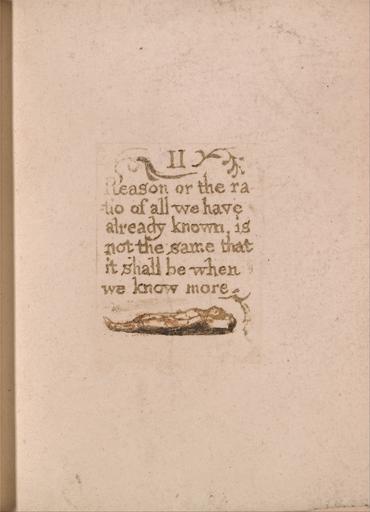 II
Reason or the ra
tio of all we have
already known, is
not the same that
it shall be when
we know more